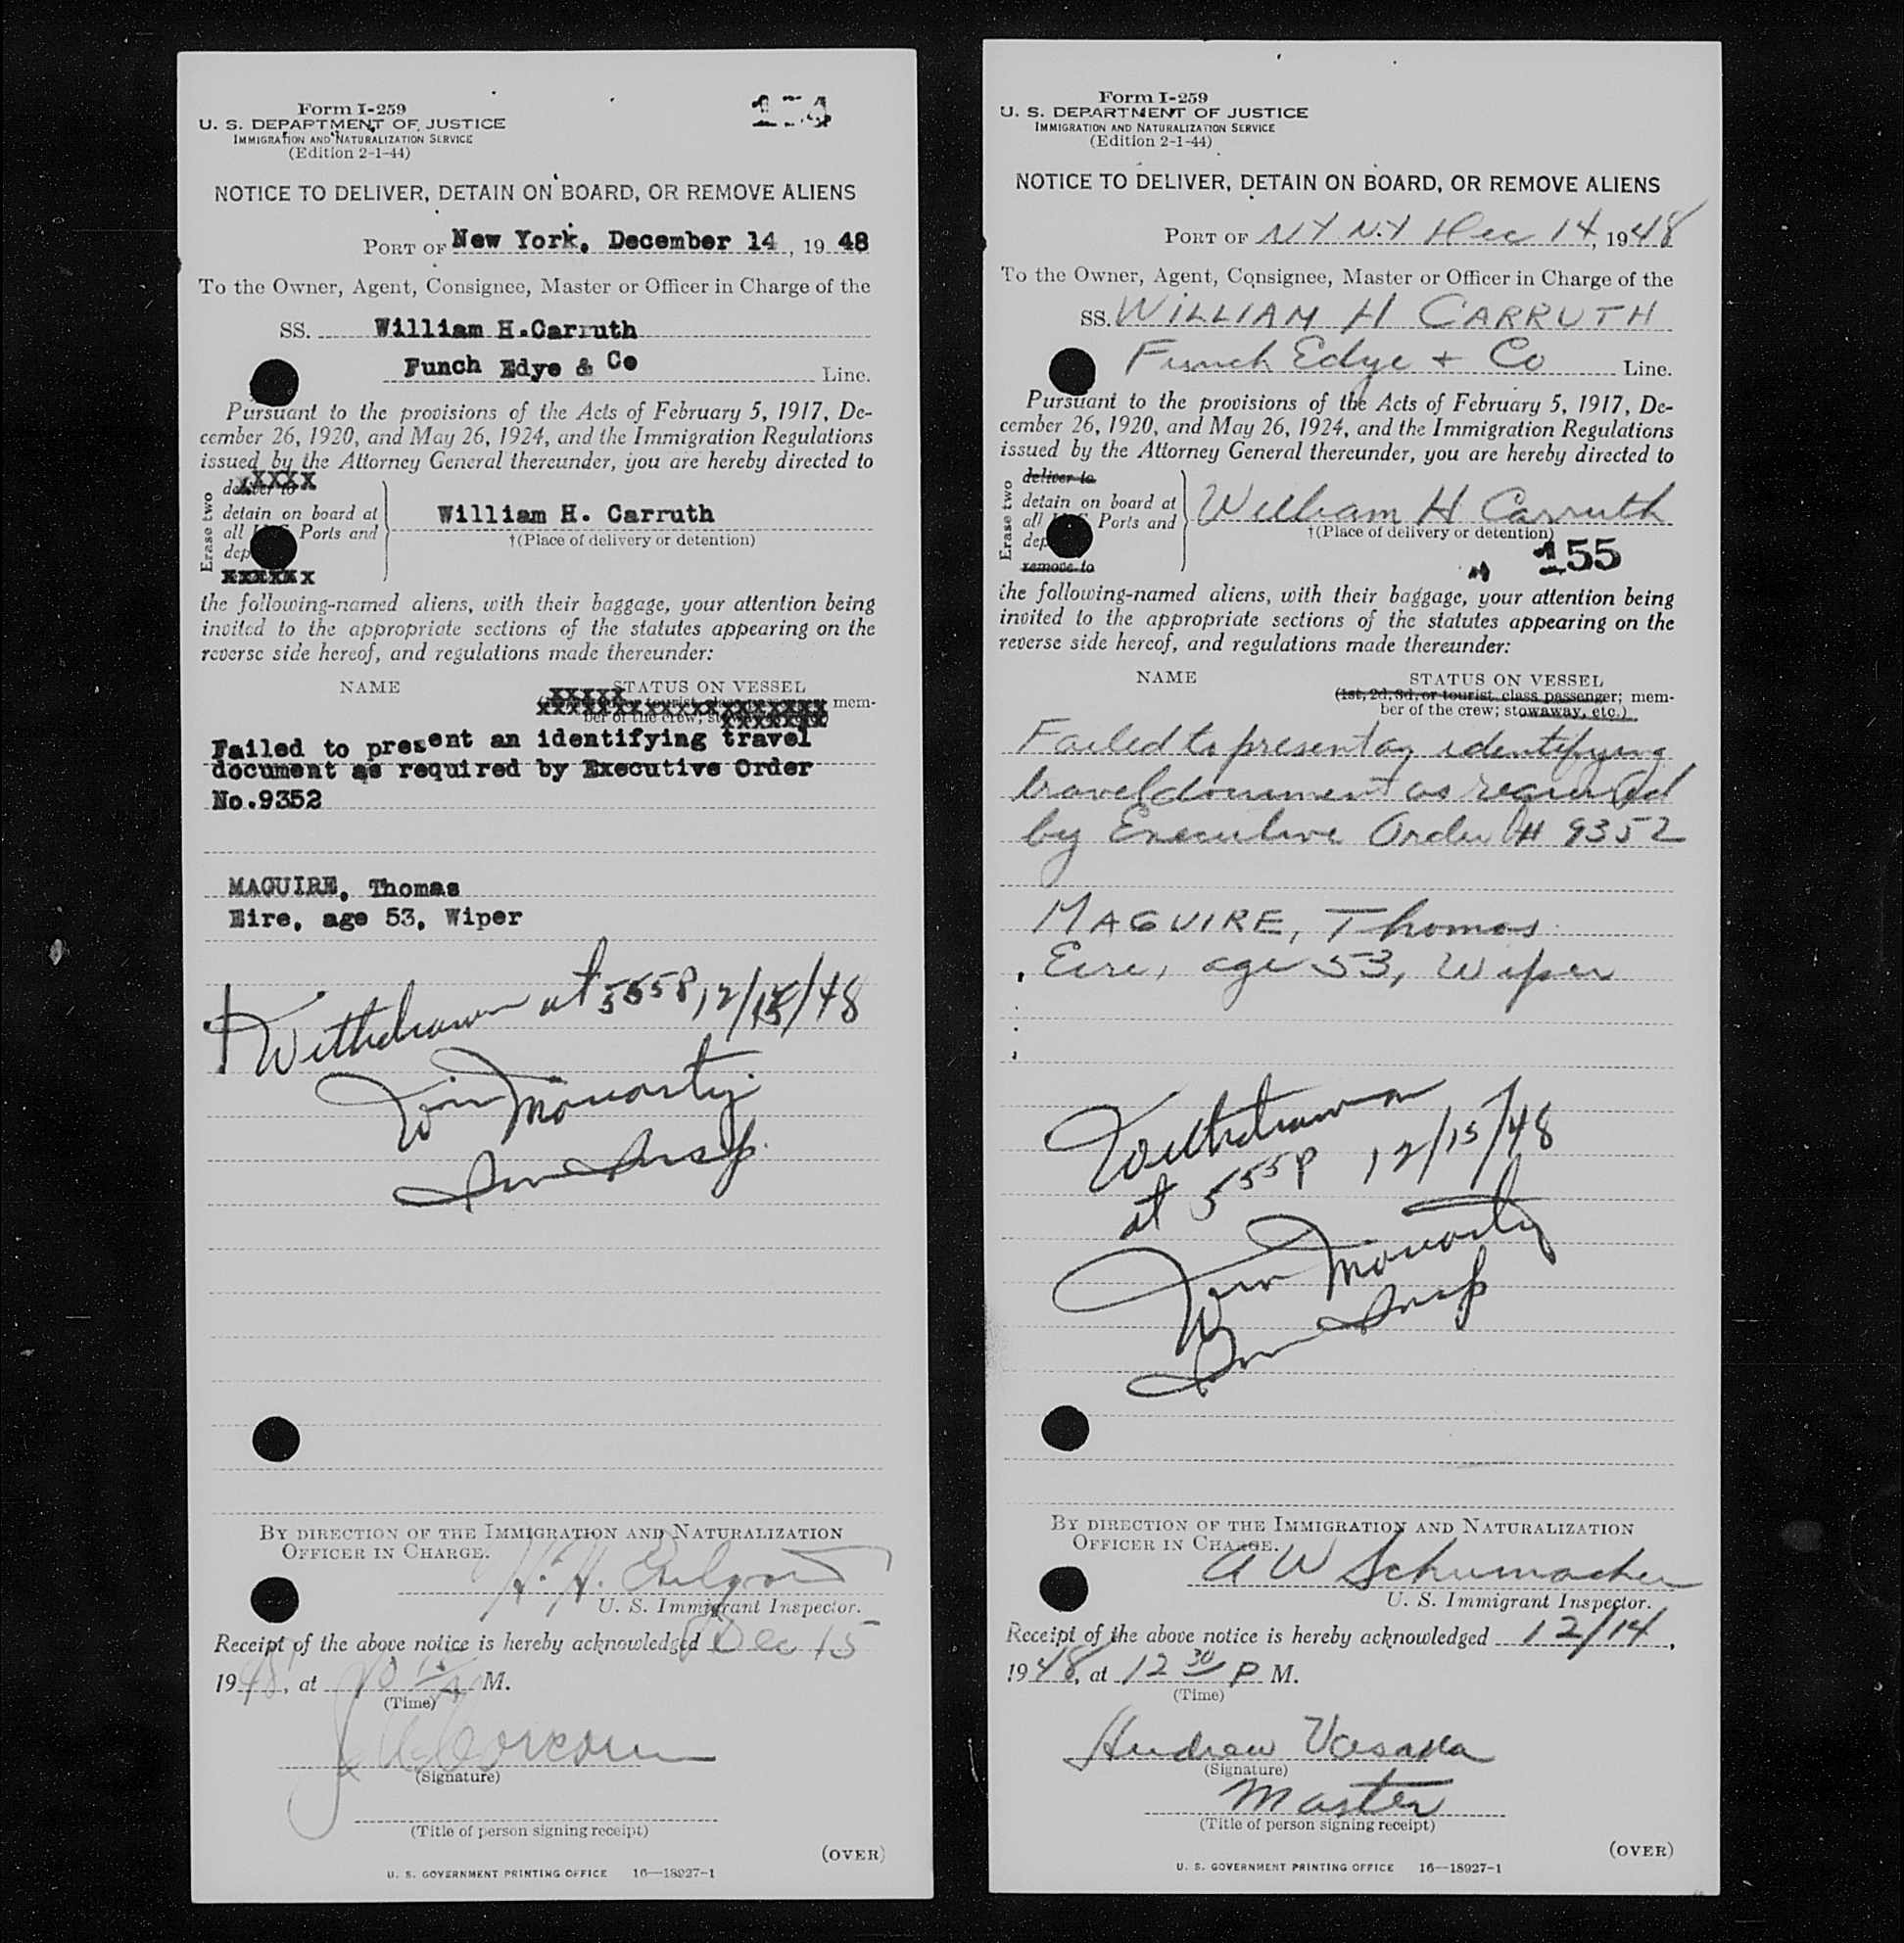 Form I-259
U. S. DEPARTMENT OF JUSTICE
IMMIGRATION AND NATURALIZATION SERVICE
(Edition 2-1-44)
NOTICE TO DELIVER, DETAIN ON BOARD, OR REMOVE ALIENS
PORT OF New York, December 14, 19 48
To the Owner, Agent, Consignee, Master or Officer in Charge of the
SS. William H.Carruth
Funch Edye & Co Line.
Pursuant to the provisions of the Acts of February 5, 1917, De-
cember 26, 1920, and May 26, 1924, and the Immigration Regulations
issued by the Attorney General thereunder, you are hereby directed to
Erase two
deliver to
detain on board at
all Ports and
William H. Carruth
†(Place of delivery or detention)
the following-named aliens, with their baggage, your attention being
invited to the appropriate sections of the statutes appearing on the
reverse side hereof, and regulations made thereunder:
NAME STATUS ON VESSEL
mem-
ber of the crew;
Failed to present an identifying travel
document as required by Executive Order
No.9352
MAGUIRE, Thomas
Eire, age 53, Wiper
Withdrawn at 555P, 12/15/48
Moriarty
Imm Insp.
BY DIRECTION OF THE IMMIGRATION AND NATURALIZATION
OFFICER IN CHARGE.
H. H.
U. S. Immigrant Inspector.
Receipt of the above notice is hereby acknowledged Dec 15
1948, at 10 A M.
(Time)
Corcoran
(Signature)
(Title of person signing receipt)
(OVER)
U. S. GOVERNMENT PRINTING OFFICE 16—18927-1
Form I-259
U. S. DEPARTMENT OF JUSTICE
IMMIGRATION AND NATURALIZATION SERVICE
(Edition 2-1-44)
NOTICE TO DELIVER, DETAIN ON BOARD, OR REMOVE ALIENS
PORT OF NY N.Y Dec 14, 1948
To the Owner, Agent, Consignee, Master or Officer in Charge of the
SS. WILLIAM H CARRUTH
Funch Edye + Co Line.
Pursuant to the provisions of the Acts of February 5, 1917, De-
cember 26, 1920, and May 26, 1924, and the Immigration Regulations
issued by the Attorney General thereunder, you are hereby directed to
Erase two
deliver to
detain on board at
all Ports and
remove to
William H Carruth
†(Place of delivery or detention)
155
the following-named aliens, with their baggage, your attention being
invited to the appropriate sections of the statutes appearing on the
reverse side hereof, and regulations made thereunder:
NAME STATUS ON VESSEL
(1st, 2d, 3d, or tourist class passenger; mem-
ber of the crew; stowaway, etc.)
Failed to present an identifying
travel document as required
by Executive Order # 9352
MAGUIRE, Thomas
Eire, age 53, Wiper
Withdrawn
at 555P 12/15/48
Moriarty
Imm Insp
BY DIRECTION OF THE IMMIGRATION AND NATURALIZATION
OFFICER IN CHARGE.
A W Schumacher
U. S. Immigrant Inspector.
Receipt of the above notice is hereby acknowledged 12/14,
1948, at 12 30 P M.
(Time)
Andrew Vasaka
(Signature)
Master
(Title of person signing receipt)
(OVER)
U. S. GOVERNMENT PRINTING OFFICE 16—18927-1